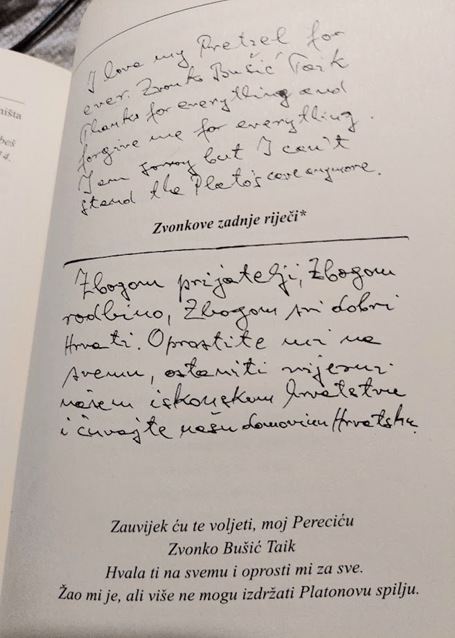 ništa
beš
I love my Pretzel for
ever. Zvonko Bušić Taik
Thanks for everything and
forgive me for everything.
I am sorry but I can't
stand the Plato's cave anymore.
Zvonkove zadnje riječi*
Zbogom prijatelji, Zbogom
rodbino, Zbogom svi dobri
Hrvati. Oprostite mi na
svemu, ostaniti vijerni
našem iskonskom hrvatstvu
i čuvajte našu domovinu Hrvatsku.
Zauvijek ću te voljeti, moj Pereciću
Zvonko Bušić Taik
Hvala ti na svemu i oprosti mi za sve.
Žao mi je, ali više ne mogu izdržati Platonovu spilju.